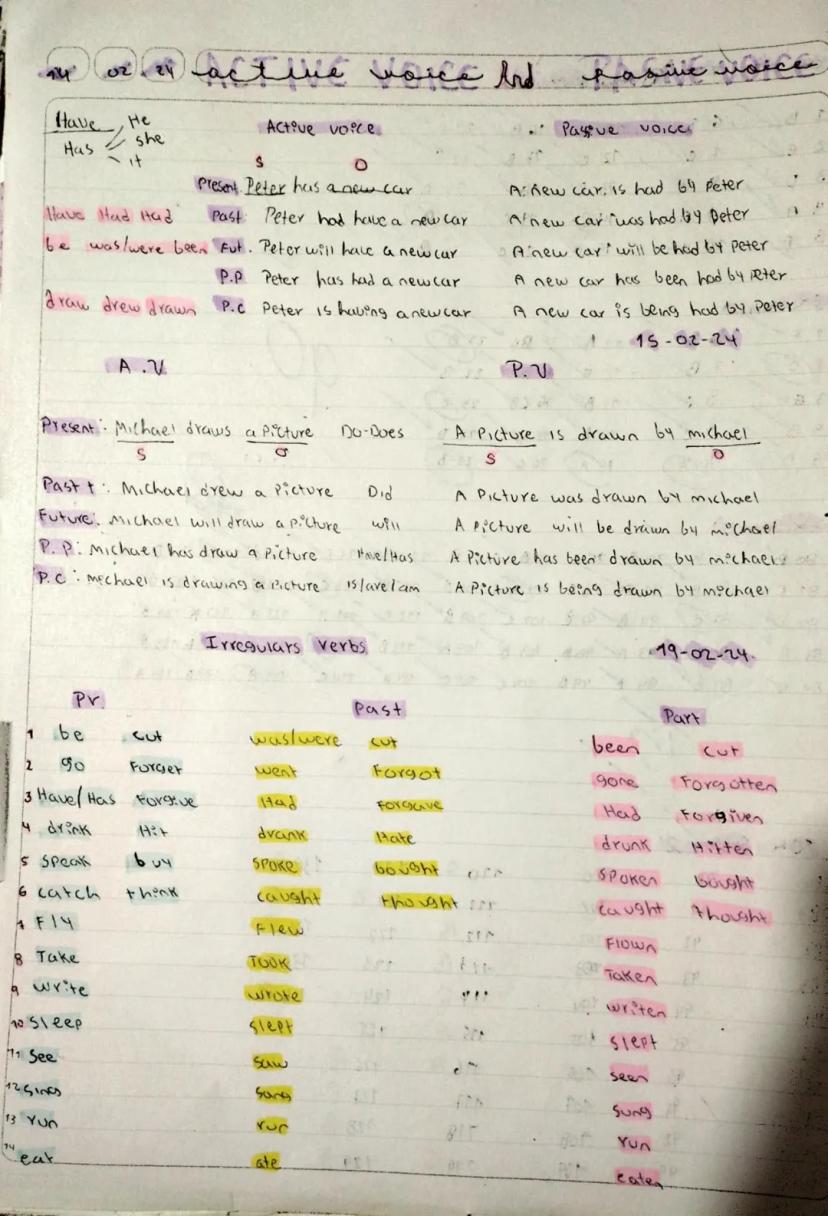 14 02 24 active voice And Pasive voice
Have He
Has she
it
Active voice Passive voice
S O
Present Peter has a new car A new car is had by Peter
Have Had Had Past Peter had have a new car A new car was had by Peter
be was/were been Fut. Peter will have a new car A new car will be had by Peter
P.P Peter has had a new car A new car has been had by Peter
draw drew drawn P.C Peter is having a new car A new car is being had by Peter
15-02-24
A.V P.V
Present: Michael draws a Picture Do-Does A Picture is drawn by michael
S O S O
Past t: Michael drew a Picture Did A Picture was drawn by michael
Future: Michael will draw a picture will A Picture will be drawn by michael
P.P: Michael has draw a Picture Have/Has A Picture has been drawn by michael
P.C: Michael is drawing a Picture is/are/am A Picture is being drawn by michael
Irregulars verbs 19-02-24
Pr. Past Part
1 be cut was/were cut been cut
2 go Forget went Forgot gone Forgotten
3 Have/Has Forgive Had Forgave Had Forgiven
4 drink Hit drank Hate drunk Hitten
5 speak buy spoke bought spoken bought
6 catch think caught thought caught thought
7 Fly Flew Flown
8 Take Took Taken
9 write wrote writen
10 sleep slept slept
11 see saw seen
12 sing sang sung
13 run run run
14 eat ate eaten